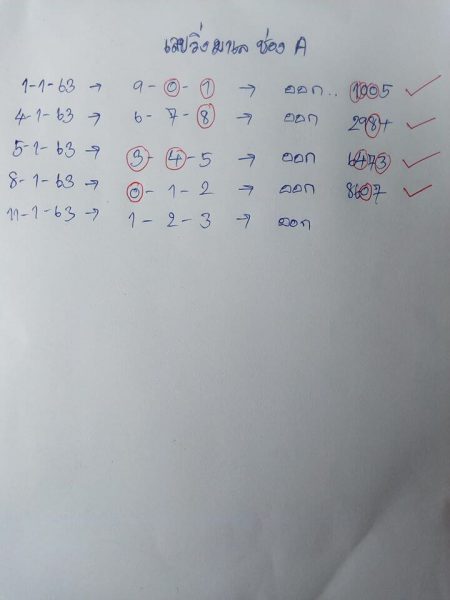 เลขวิ่งมาเล ช่อง A
1-1-63 → 9-0-1 → ออก.. 1005 ✓
4-1-63 → 6-7-8 → ออก 2984 ✓
5-1-63 → 3-4-5 → ออก 6473 ✓
8-1-63 → 0-1-2 → ออก 8607 ✓
11-1-63 → 1-2-3 → ออก